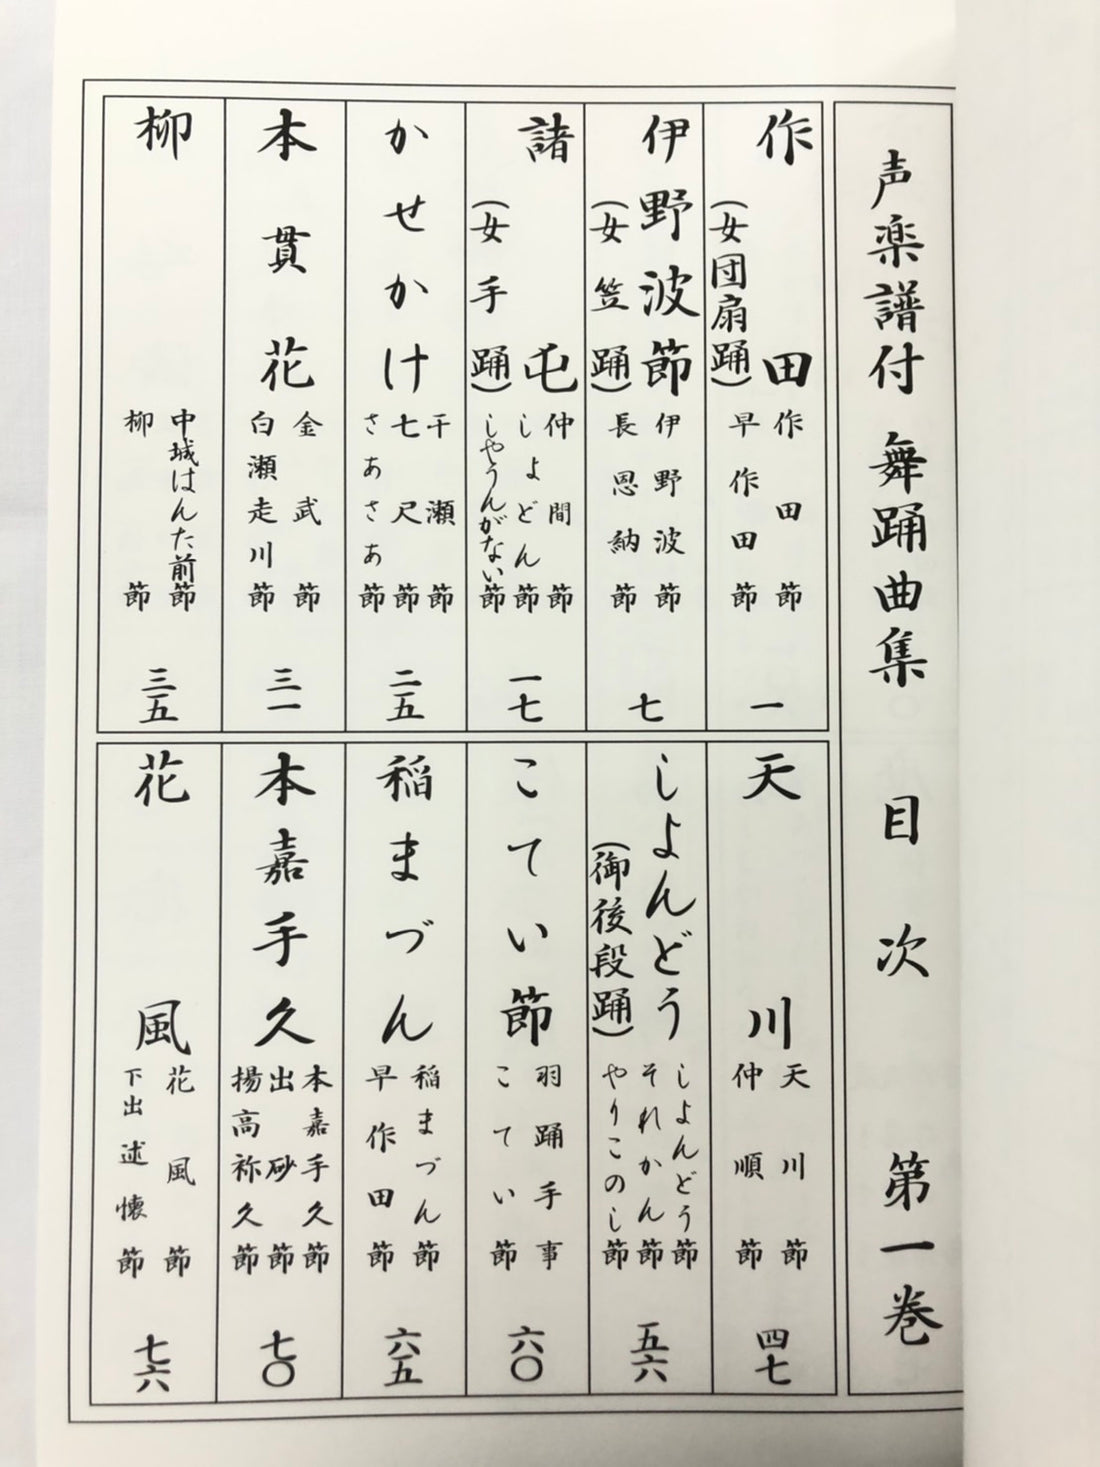 声楽譜付 舞踊曲集 目次 第一巻
作田
(女団扇踊)
作田節
早作田節
一
伊野波節
(女笠踊)
伊野波節
長恩納節
七
諸屯
(女手踊)
仲間節
しよどん節
しやうんがない節
一七
かせかけ
干瀬節
七尺節
さあさあ節
二五
本貫花
金武節
白瀬走川節
三一
柳
中城はんた前節
柳節
三五
天川
天川節
仲順節
四七
しよんどう
(御後段踊)
しよんどう節
それかん節
やりこのし節
五六
こてい節
羽踊手事
こてい節
六〇
稲まづん
稲まづん節
早作田節
六五
本嘉手久
本嘉手久節
出砂節
揚高祢久節
七〇
花風
花風節
下出述懐節
七六